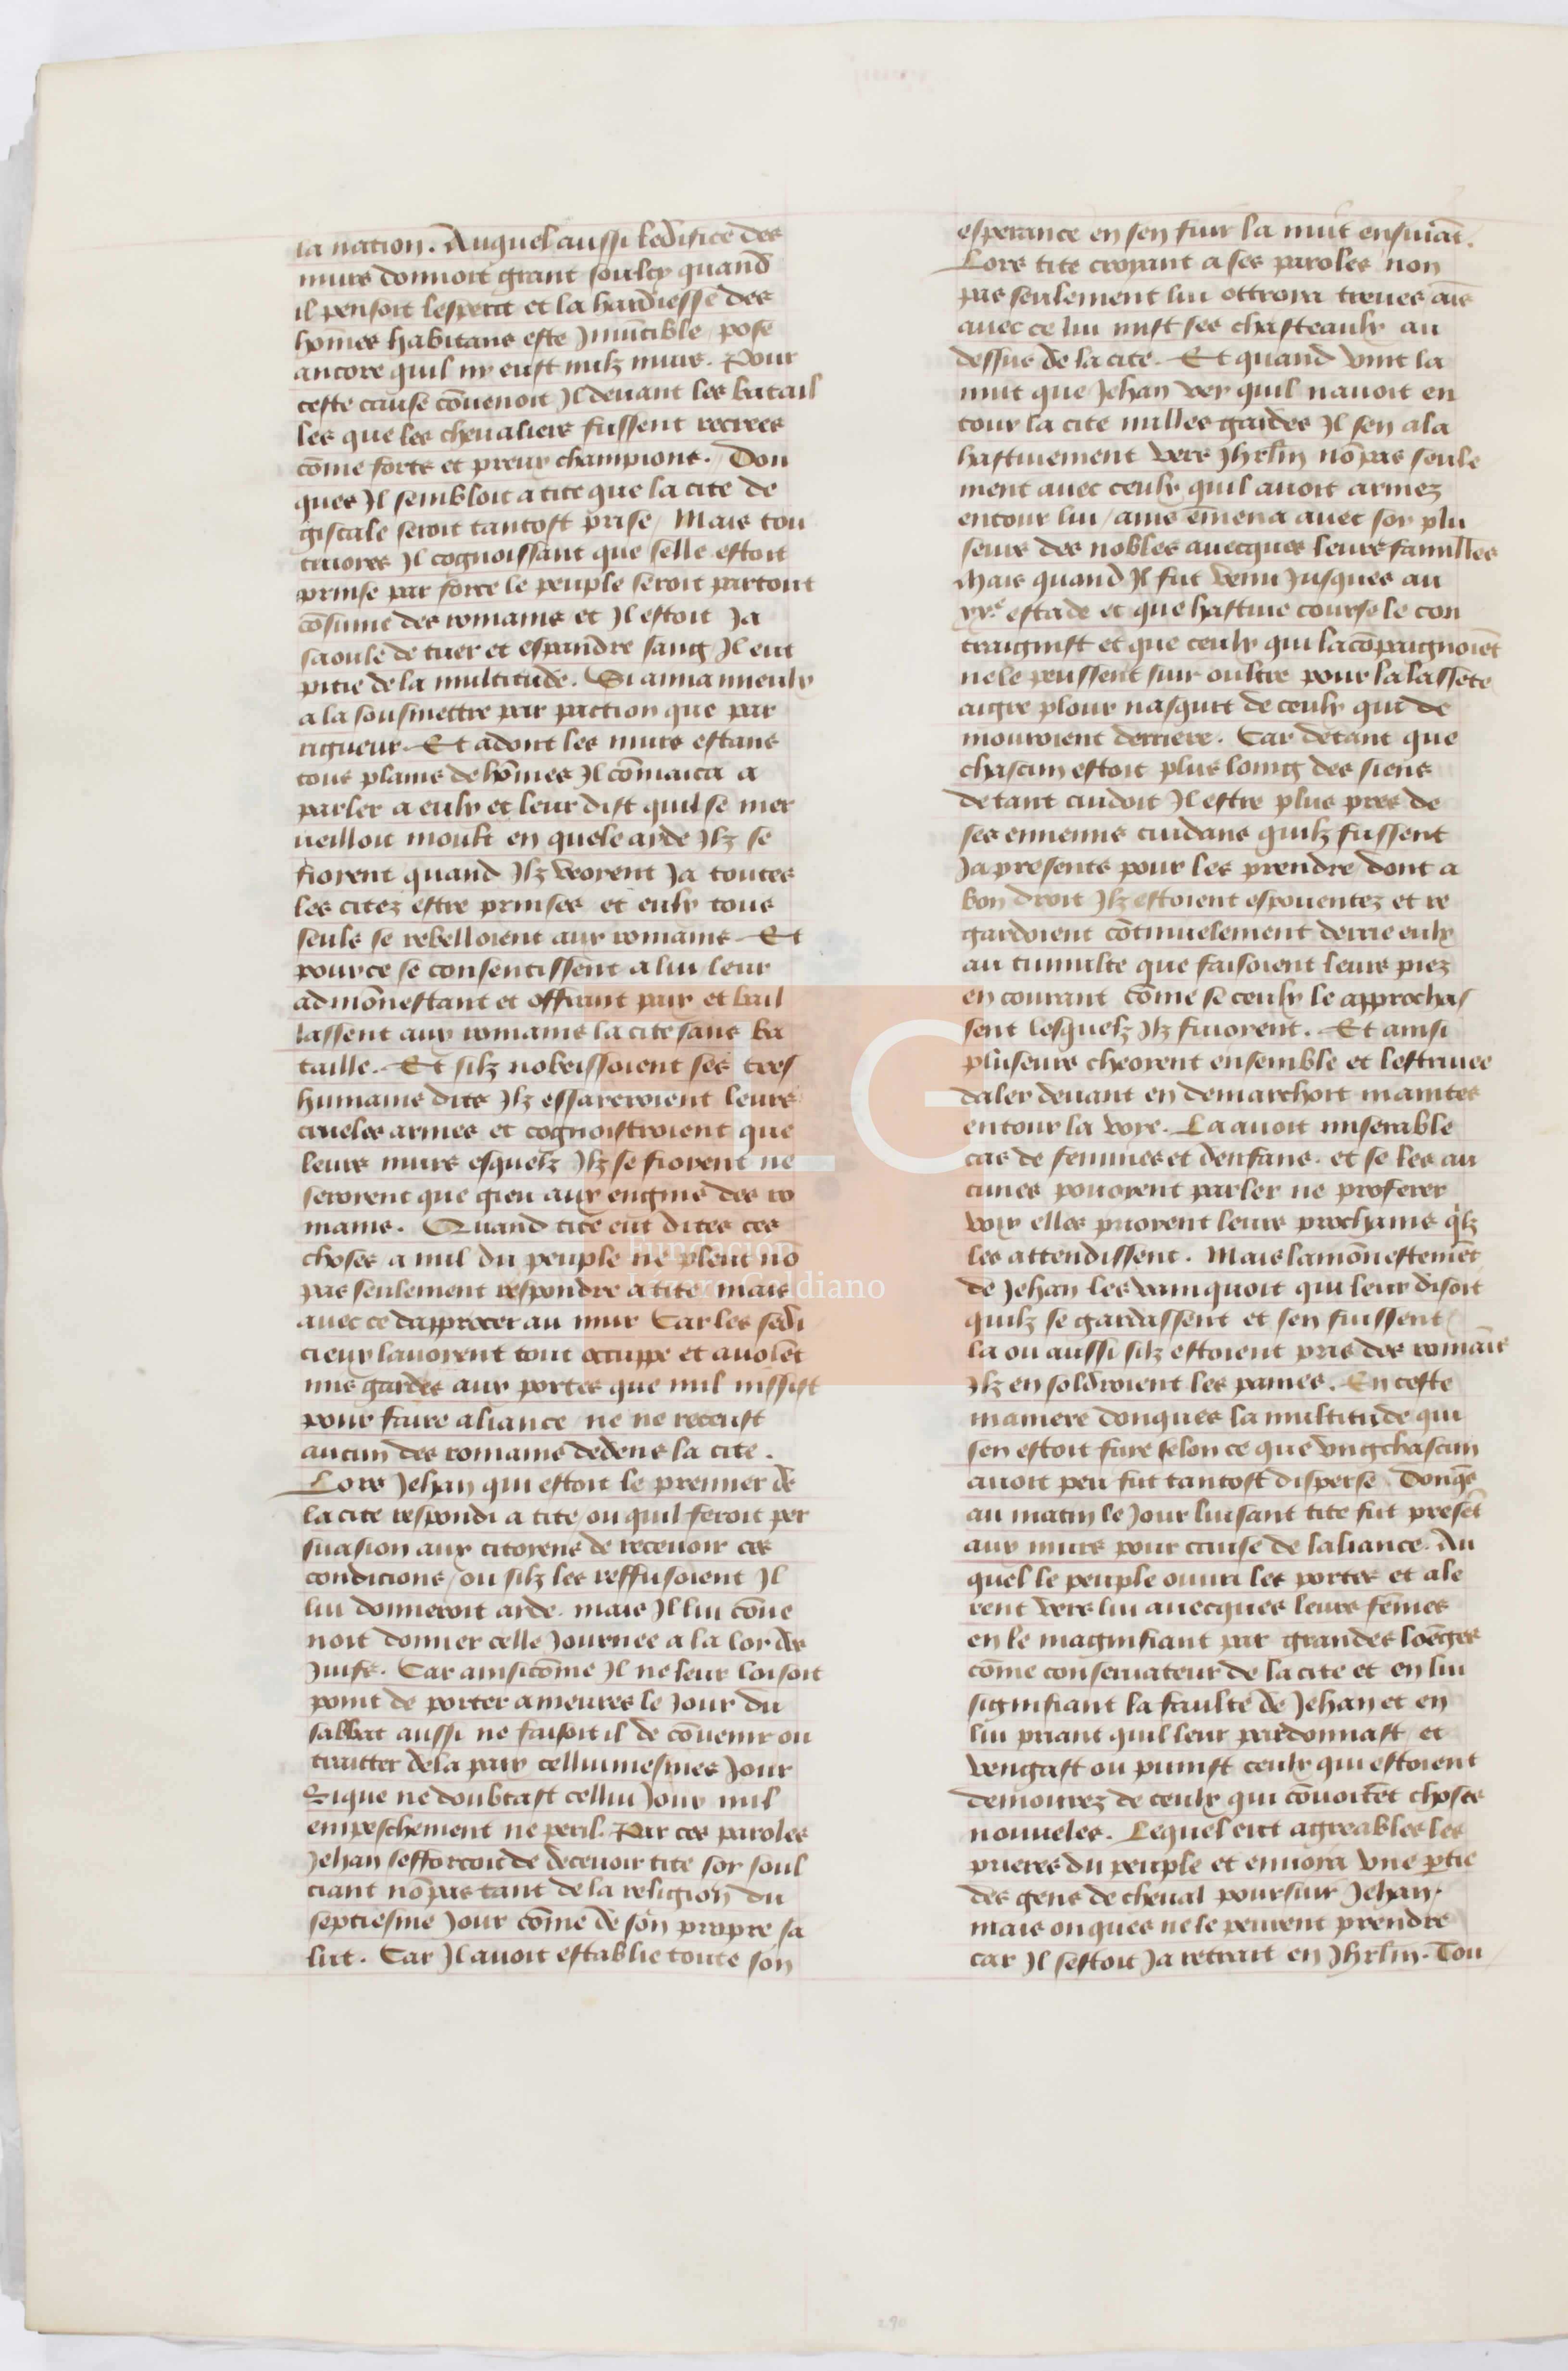 la nation. Auquel aussi ledifice des
murs donnoit grant soulcy quand
il pensoit lesperit et la hardiesse des
hōmes habitans estre Jnuīcible / pose
ancore quil ny eust nulz murs. Pour
ceste cause cōuenoit Jl deuant les batail
les que les cheualiers fussent recrees
cōme forts et preux champions. Don
ques Jl sembloit a tite que la cite de
giscale seroit tantost prise / Mais tou
teuoies Jl cognoissant que selle estoit
prinse par force le peuple seroit partout
cōsume des romains et Jl estoit Ja
saoule de tuer et espandre sang Jl eut
pitie de la multitude. Si ama mieulx
a la soubmettre par paction que par
rigueur. Et adont les murs estans
tous plains de hōmes Jl cōmāca a
parler a eulx et leur dist quil se mer
ueilloit moult en quele ayde Jlz se
fioient quand Jlz veoient Ja toutes
les citez estre prinses et eulx tous
seuls se rebelloient aux romains. Et
pource se consentissent a lui leur
admōnestant et offrant paix et bail
lassent aux romains la cite sans ba
taille. Et silz nobeissoient ses tres
humains dits Jlz essaieroient leurs
crueles armes et cognoistroient que
leurs murs esquelz Jlz se fioient ne
seroient que gieu aux engins des ro
mains. Quand tite eut dites ces
choses a nul du peuple ne pleut nō
pas seulement respondre a tite mais
auec ce dapprocer au mur Car les sedi
cieux lauoient tout occuppe et auoiēt
mis gardes aux portes que nul nissist
pour faire aliance / ne ne receust
aucun des romains dedens la cite.
Lors Jehan qui estoit le premier de
la cite respondi a tite ou quil feroit per
suasion aux citoyens de receuoir ces
condicions / ou silz les reffusoient Jl
lui donneroit ayde. mais Jl lui cōue
noit donner celle Journee a la loy des
Juifs. Car ainsi cōme Jl ne leur loisoit
point de porter armeures le Jour du
sabbat aussi ne faisoit il de cōuenir ou
traitter de la paix cellui mesmes Jour
Si que ne doubtast cellui Jour nul
empeschement ne peril. Par ces paroles
Jehan sefforcoit de deceuoir tite soy soul
ciant nō pas tant de la religion du
septiesme Jour cōme de son propre sa
lut. Car Jl auoit establie toute son
esperance en sen fuir la nuit ensuiāt.
Lors tite croyant a ses paroles non
pas seulement lui ottroya treues aīs
auec ce lui mist ses chasteaulx au
dessus de la cite. Et quand vint la
nuit que Jehan vey quil nauoit en
tour la cite nulles gardes Jl sen ala
hastiuement vers Jhrlm nō pas seule
ment auec ceulx quil auoit armez
entour lui / ains ēmena auec soy plu
seurs des nobles auecques leurs familles
Mais quand Jl fut venu Jusques au
xx.e estade et que hastiue course le con
traignist et que ceulx qui lacōpaignoiēt
ne le peussent suir oultre pour la lassete
aigre plour nasquit de ceulx qui de
mouroient derriere. Car de tant que
chascun estoit plus loing des siens
de tant cuidoit Jl estre plus pres de
ses ennemis cuidans quilz fussent
Ja presents pour les prendre / dont a
bon droit Jlz estoient espouentez et re
gardoient cōtinuelement derrie eulx
au tumulte que faisoient leurs piez
en courant cōme se ceulx le approchas
sent lesquelz Jlz fuioient. Et ainsi
pluseurs cheoient ensemble et lestriuee
daler deuant en demarchoit maintes
entour la voye. La auoit miserable
cas de femmes et denfans. et se les au
cunes pouoient parler ne proferer
voix elles prioient leurs prochains q̄lz
les attendissent. Mais lamōnestemēt
de Jehan les vainquoit qui leur disoit
quilz se gardassent et sen fuissent /
la ou aussi silz estoient pris des romaīs
Jlz en soldroient les paines. En ceste
maniere donques la multitude qui
sen estoit fuie selon ce que vng chascun
auoit peu fut tantost disperse. Donq̄s
au matin le Jour luisant tite fut presēt
aux murs pour cause de laliance. Au
quel le peuple ouuri les portes et ale
rent vers lui auecques leurs fēmes
en le magnifiant par grandes loēges
cōme conseruateur de la cite et en lui
signifiant la faulte de Jehan et en
lui priant quil leur pardonnast et
vengast ou punist ceulx qui estoient
demourez de ceulx qui cōuoitēt choses
nouueles. Lequel eut agreables les
prieres du peuple et enuoya vne p̄tie
des gens de cheual poursuir Jehan.
mais onques ne le peurent prendre
car Jl sestoit Ja retrait en Jhrlm. Tou
LG
Fundación
Lázaro Galdiano
290